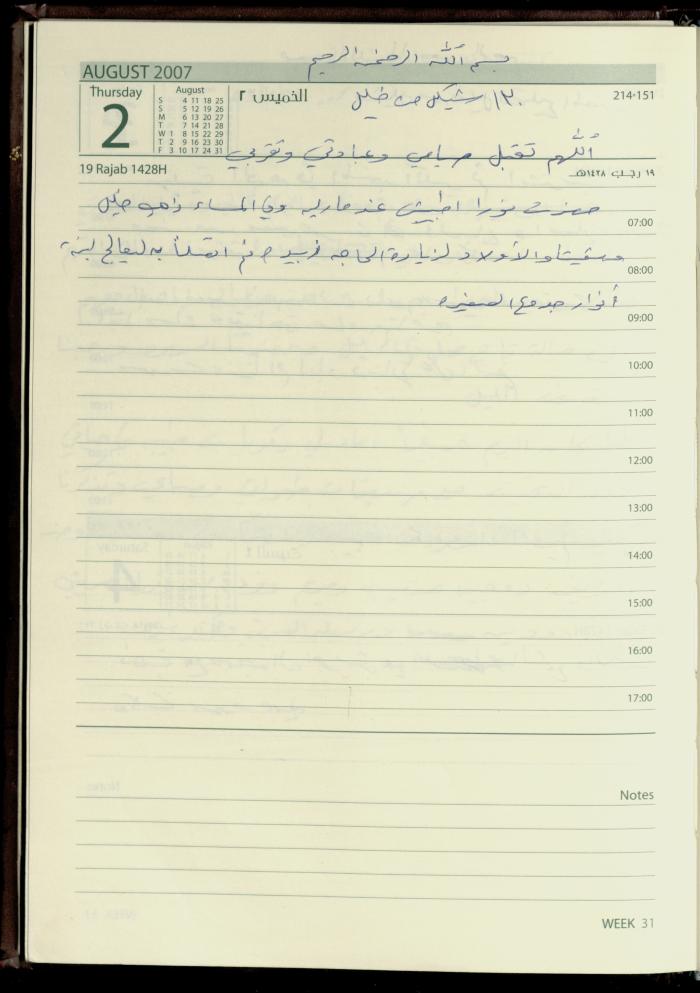 بسم الله الرحمن الرحيم
AUGUST 2007
Thursday
2
August
S 4 11 18 25
S 5 12 19 26
M 6 13 20 27
T 7 14 21 28
W 1 8 15 22 29
T 2 9 16 23 30
F 3 10 17 24 31
الخميس ٢
١٣٠ شيكل من خليل
214-151
اللهم تقبل صيامي وعبادتي وتقربي
19 Rajab 1428H
١٩ رجب ١٤٢٨هـ
حضرت نورا عند ماريه وفي المساء ذهب خليل
07:00
والأولاد لزيارة الحاجه فريد ثم اتصلنا به ليعالج لبنة
08:00
أنوار جدوع الصغيره
09:00
10:00
11:00
12:00
13:00
14:00
15:00
16:00
17:00
Notes
WEEK 31